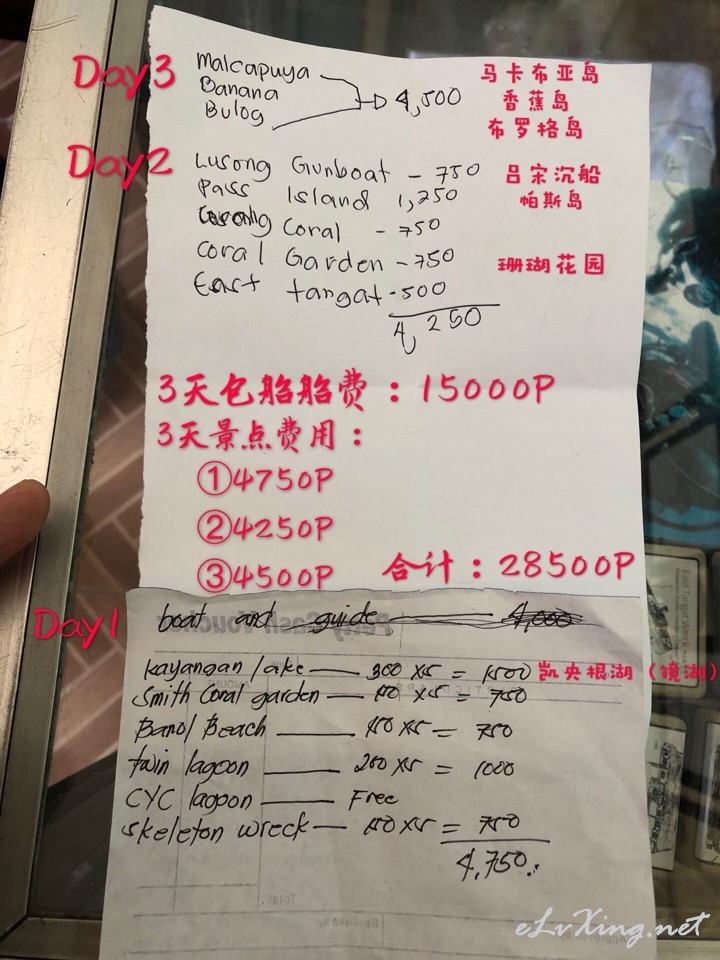 Day3 Malcapuya 马卡布亚岛
Banana 4,500 香蕉岛
Bulog 布罗格岛
Day2 Lusong Gunboat - 750 吕宋沉船
Pass Island 1,250 帕斯岛
Lusong Coral - 750
Coral Garden - 750 珊瑚花园
East tangat - 500
4,250
3天包船船费：15000P
3天景点费用：
①4750P
②4250P
③4500P 合计：28500P
Day1 boat and guide 4,000
Petty Cash Voucher
kayangan lake 300 x5 = 1500 凯央根湖（镜湖）
Smith Coral garden 150 x5 = 750
Banol Beach 150 x5 = 750
twin lagoon 200 x5 = 1000
CYC lagoon Free
skeleton wreck 150 x5 = 750
4,750.
Total
Received by
eLvXing.net